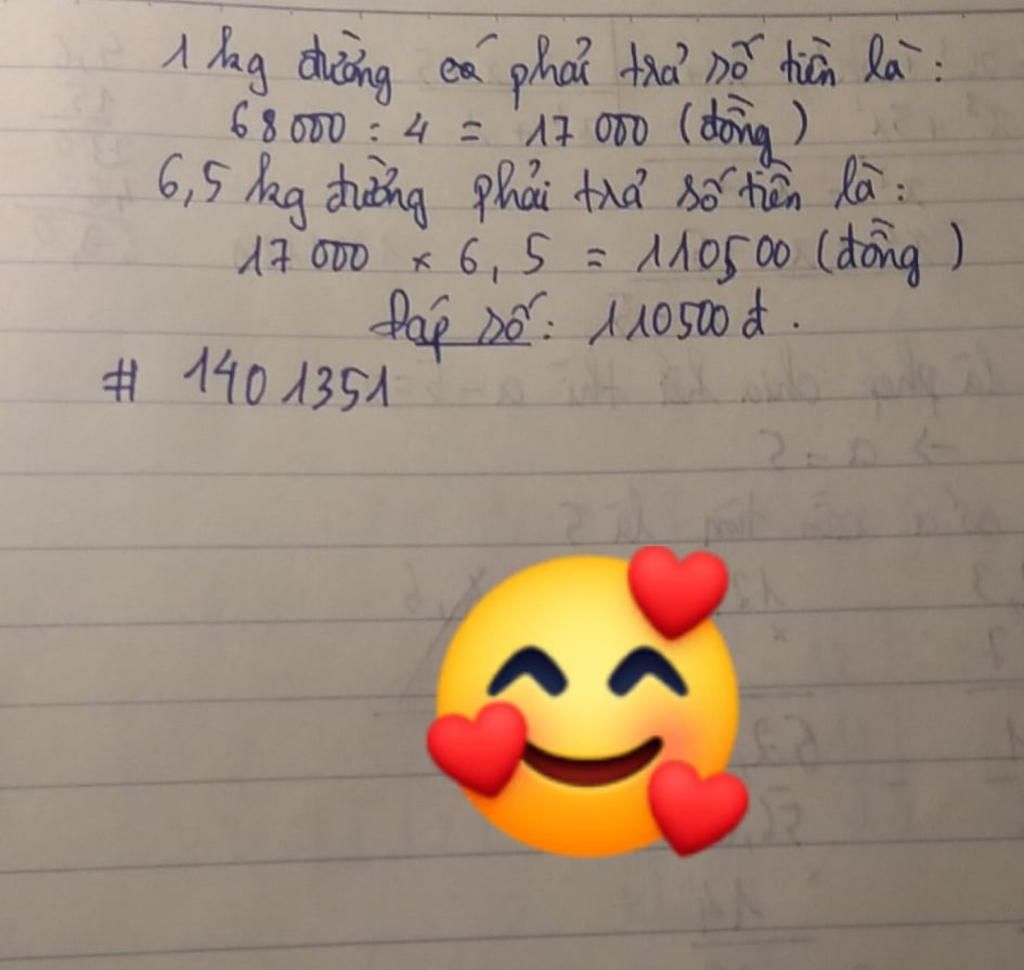 1 kg đường cá phải trả số tiền là :
68 000 : 4 = 17 000 (đồng)
6,5 kg đường phải trả số tiền là :
17 000 × 6,5 = 110500 (đồng)
Đáp số : 110500 đ .
# 1401351